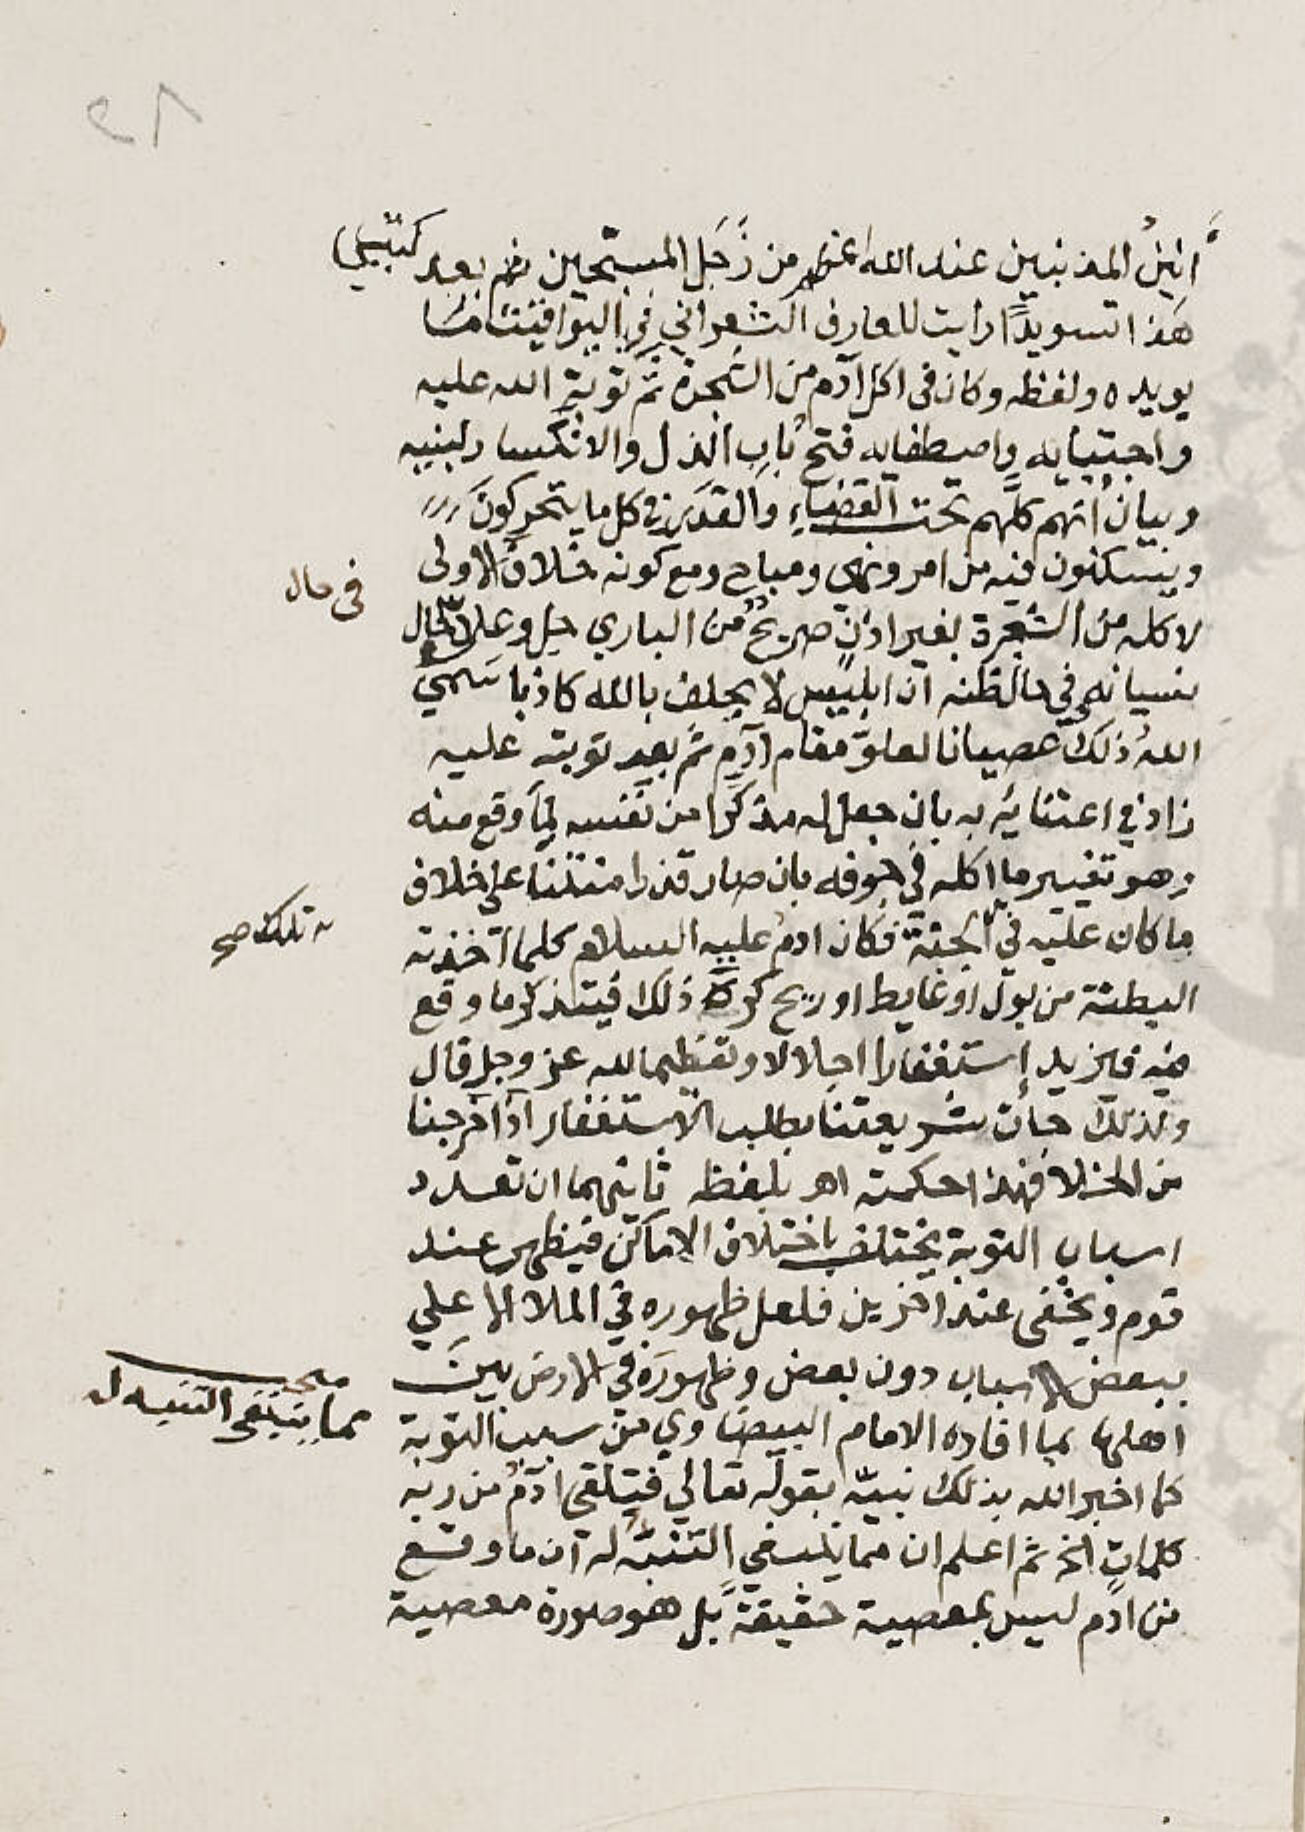 ٢٨
أنين المذنبين عند الله اعظم من زجل المسبحين ثم بعد كتبي
هذا تسويدا رايت للعارف الشعراني في اليواقيت ما
يويده ولفظه وكان في اكل آدم من الشجرة ثم توبة الله عليه
واجتبايه واصطفايه فتح باب الذل والانكسار لبنيه
وبيان انهم كلهم تحت القضاء والقدر في كل ما يتحركون
ويسكنون فيه من امر ونهى ومباح ومع كونه خلاف الاولى
في حال
لاكله من الشجرة بغير اذن صريح من الباري جل وعلا
نسيانه في حال ظنه ان ابليس لا يحلف بالله كاذبا سمي
الله ذلك عصيانا لعلو مقام آدم ثم بعد توبته عليه
زاد في اعتنايه به بان جعل له مذكرا من نفسه لما وقع منه
وهو تغيير ما اكله في جوفه بان صار قذرا منتنا على خلاف
ما كان عليه في الجنة فكان ادم عليه السلام كلما اخذته
تلك صح
البطنة من بول او غايط او ريح كره ذلك فيتذكر ما وقع
منه فيزيد إستغفارا اجلالا وتعظيما لله عز وجل قال
ولذلك جأت شريعتنا بطلب الاستغفار اذا خرجنا
من الخلا فهذا حكمته اهـ بلفظه ثانيهما ان تعدد
اسباب التوبة يختلف باختلاف الاماكن فيظهر عند
قوم ويخفى عند اخرين فلعل ظهوره في الملا الاعلي
ببعض الاسباب دون بعض وظهوره في الارض بين
اهلها بما افاده الامام البيضاوي من سبب التوبة
مما ينبغى التنبه له
كما اخبر الله بذلك نبيه بقوله تعالي فتلقى آدم من ربه
كلمات الخ ثم اعلم ان مما ينبغي التنبه له ان ما وقع
من ادم ليس بمعصية حقيقة بل هو صورة معصية